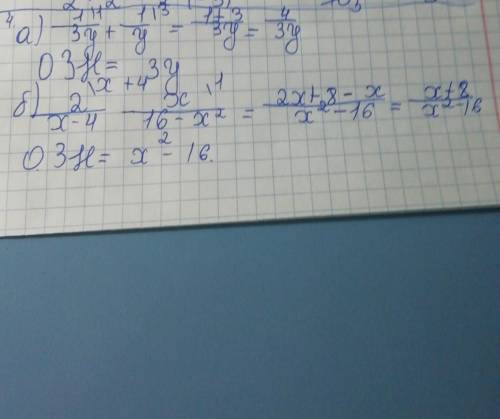 4 а) 1\1/3y + 1\3/y = 1+3/3y = 4/3y
ОЗН = 3y
б) 2\x+4/x-4 x\1/16-x² = 2x+8-x/x²-16 = x+8/x²-16
ОЗН = x²-16.